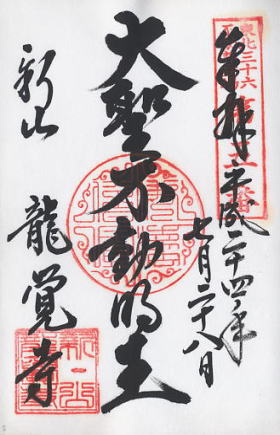 奉拝
平成二十四年
七月二十八日
東北三十六
大聖不動明王
新山
龍覚寺